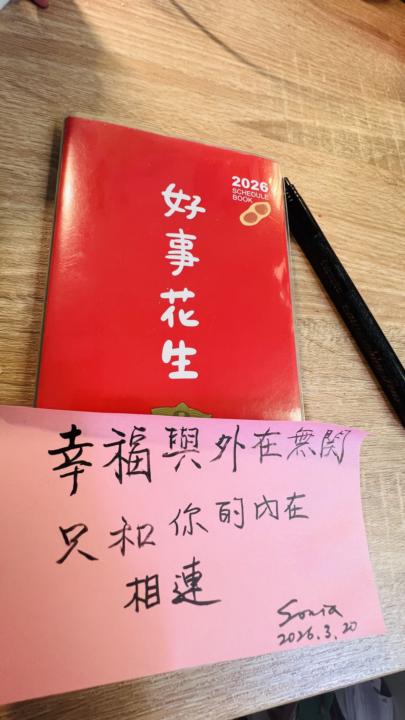 2026
SCHEDULE
BOOK
好事花生
幸福與外在無関
只和你的內在
相連
Sonia
2026.3.20